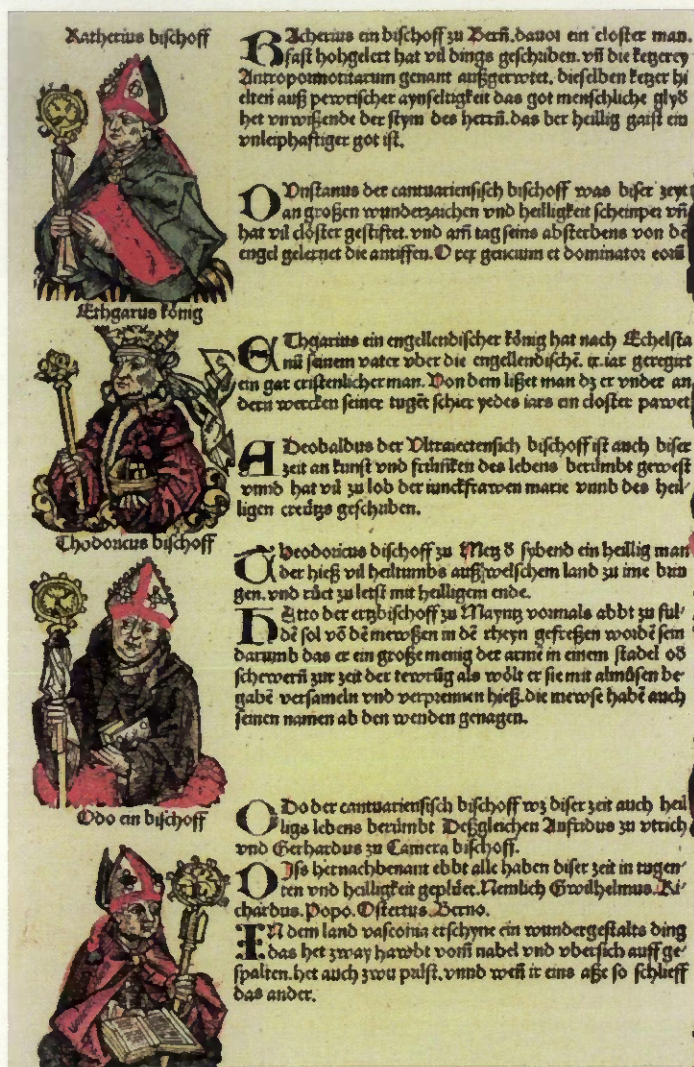 Ratherius bischoff
RAcherius ein bischoff zu Bern̄. dauor ein closter man.
fast hohgelert hat vil dings geschriben. vn̄ die ketzerey
Antropormotitarum genant außgerwtet. dieselben ketzer hi
elten auß pewrischer aynfeltigkeit das got menschliche glyd
het vnwißende der stym des herrn̄. das der heillig gaist ein
vnleiphaftiger got ist.
DVnstanus der cantuariensisch bischoff was diser zeyt
an großen wunderzaichen vnd heilligkeit scheinper vn̄
hat vil clöster gestiftet. vnd am̄ tag seins absterbens von dē
engel gelernet die antiffen. O rex gencium et dominator eorū
Ethgarus könig
EThgarius ein engellendischer könig hat nach Echelsta
nū seinem vater vber die engellendischē. ix. iar geregirt
ein gar cristenlicher man. Von dem lißet man dz er vnder an
dern wercken seiner tugēt schier yedes iars ein closter pawet
ADeobaldus der Vltraiectensich bischoff ist auch diser
zeit an kunst vnd frümken des lebens berümbt gewest
vnnd hat vil zu lob der iunckfrawen marie vnnb des heil-
ligen creützs geschriben.
Thodoricus bischoff
Theodoricus bischoff zu Metz d̕ sybend ein heillig man
der hieß vil heiltumbs auß welschem land zu ime brin
gen. vnd rüet zu letst mit heilligem ende.
HAtto der ertzbischoff zu Mayntz vormals abbt zu ful-
dē sol vō dē mewßen in dē rheyn gefreßen wordē sein
darumb das er ein große menig der armē in einem stadel od̕
schewern̄ zur zeit der tewrūg als wölt er sie mit almůsen be-
gabē versameln vnd verprennen hieß. die mewse habē auch
seinen namen ab den wenden genagen.
Odo ein bischoff
ODo der cantuariensisch bischoff wz diser zeit auch heil
ligs lebens berümbt Deßgleichen Anfridus zu vtrich
vnd Gerhardus zu Camera bischoff.
DIse hernachbenant ebbt alle haben diser zeit in tugen-
ten vnd heilligkeit geplüet. Nemlich Gwilhelmus. Ri-
chardus. Popo. Ostertus. Berno.
IN dem land vasconia erschyne ein wundergestalts ding
das het zway hawbt vom̄ nabel vnd vbersich auff ge-
spalten. het auch zwu prüst. vnnd wen̄ ir eins aße so schlieff
das ander.